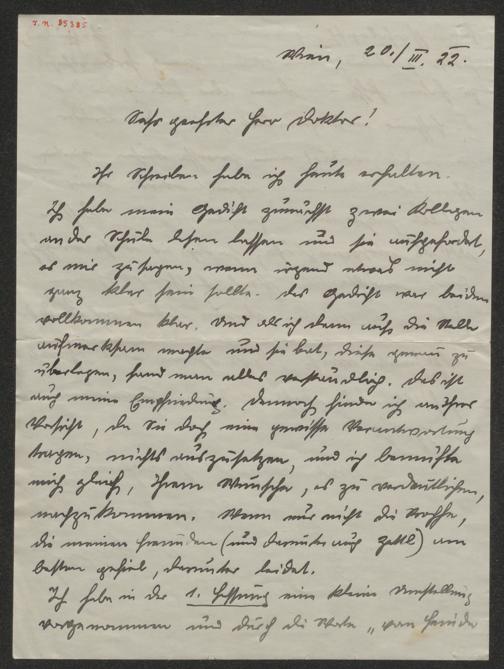 I.N. 85385
Wien, 20./III. 22.
Sehr geehrter Herr Doktor!
Ihr Schreiben habe ich heute erhalten.
Ich habe mein Gedicht zunächst zwei Kollegen
an der Schule lesen lassen und sie aufgefordert,
es mir zu sagen, wenn irgend etwas nicht
ganz klar sein sollte. Das Gedicht war beiden
vollkommen klar. Und als ich dann auf die Stelle
aufmerksam machte und sie bat, diese genau zu
überlegen, fand man alles verständlich. Das ist
auch meine Empfindung. Dennoch finde ich an Ihrer
Vorsicht, da Sie doch eine gewisse Verantwortung
tragen, nichts auszusetzen, und ich bemühte
mich gleich, Ihrem Wunsche, es zu verdeutlichen,
nachzukommen. Wenn nur nicht die Strophe,
die meinen Freunden (und darunter auch Zettl) am
besten gefiel, darunter leidet.
Ich habe in der 1. Fassung eine kleine Umstellung
vorgenommen und durch die Worte „von